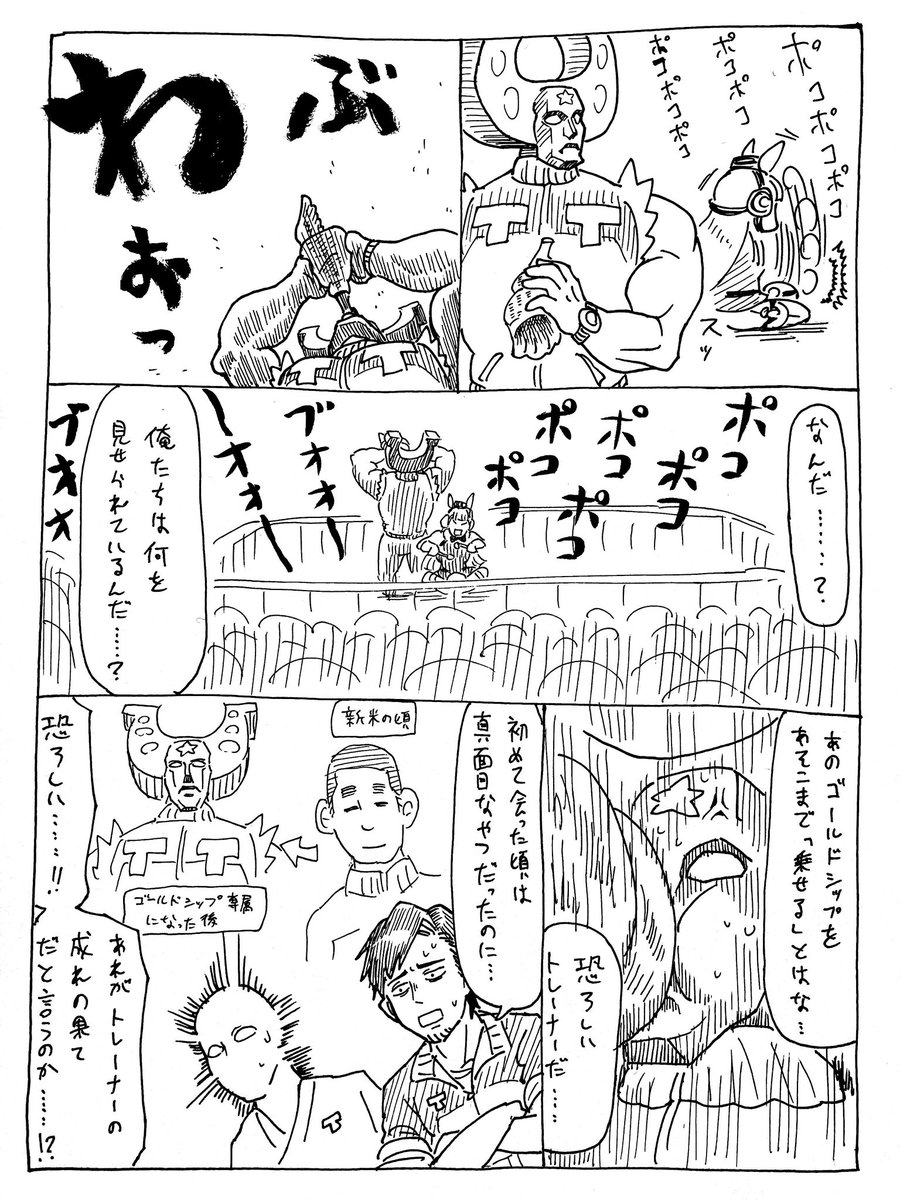 ポコポコポコ
ポコポコ
ポコポコポコ
スッ
ぶ
わ
おっ
なんだ……?
ポコ
ポコ
ポコ
ポコ
ポコ
ポコ
ブオオー
ーオオー
ブオオ
俺たちは何を
見せられているんだ……?
あのゴールドシップを
あそこまで「乗せる」とはな…
恐ろしい
トレーナーだ……
初めて会った頃は
真面目なやつだったのに…
新米の頃
ゴールドシップ専属
になった後
恐ろしい……!!
あれがトレーナーの
成れの果て
だと言うのか……!?